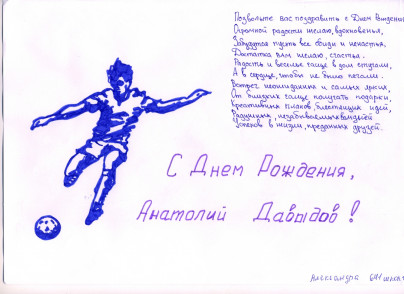 Позвольте вас поздравить с Днем Рождения
Огромной радости желаю, вдохновенья,
Забудутся пусть все обиды и ненастья,
Достатка вам желаю, счастья.
Радость и веселье чаще в дом стучали,
А в сердце, чтобы не было печали.
Встреч неожиданных и самых ярких,
От близких чаще получать подарки,
Креативных планов, блестящих идей,
Радушных, незабываемых
Успехов в жизни, преданных друзей.
С Днем Рождения,
Анатолий Давыдов!
Александра 641